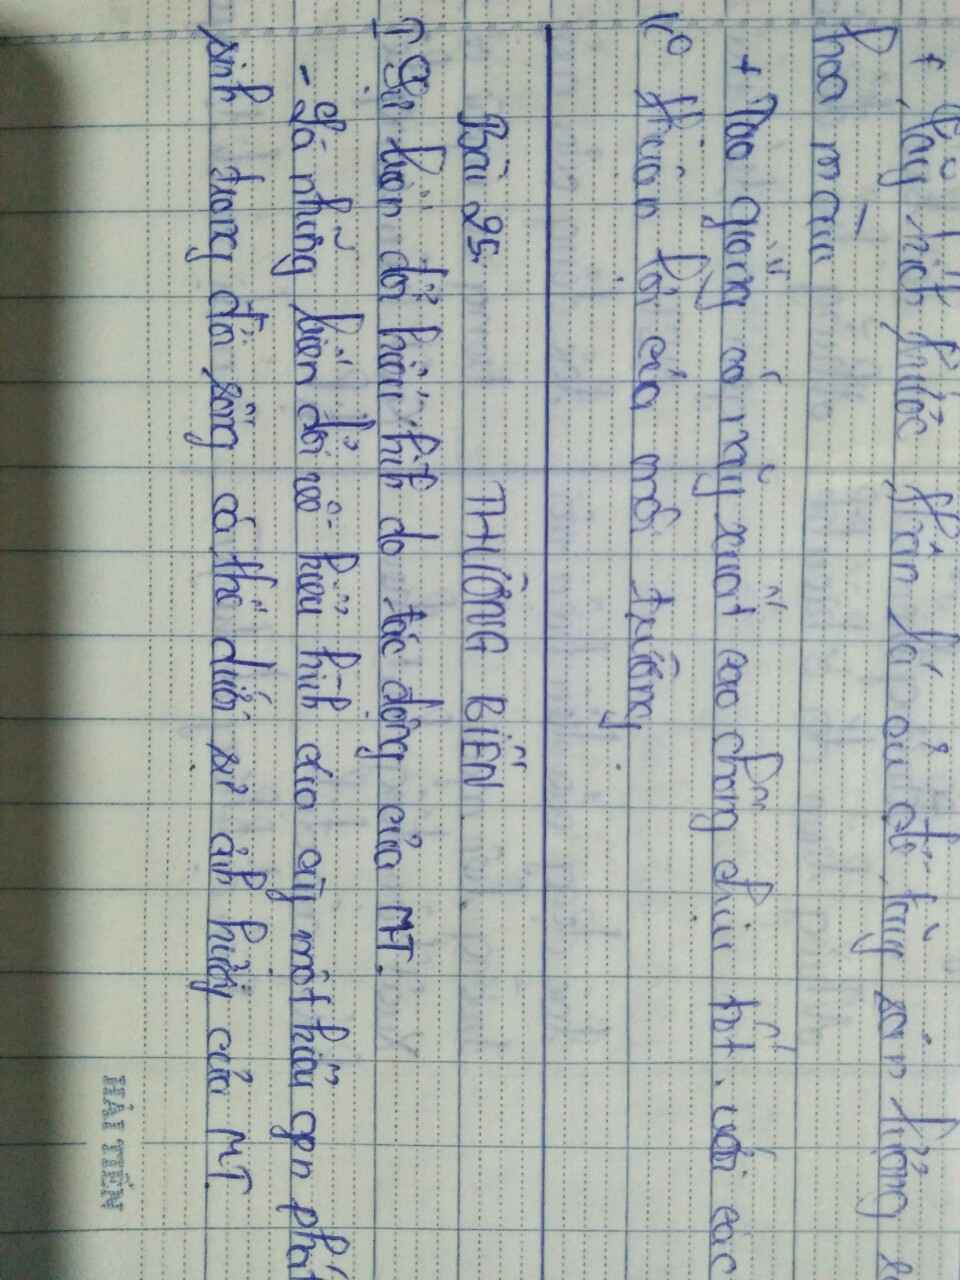 + Tăng kích thước thân lá củ để tăng sản lượng
hoa màu
+ Tạo giống có năng xuất cao chống chịu tốt với các
đk thuận lợi của môi trường.
Bài 25: THƯỜNG BIẾN
I Sự biến đổi kiểu hình do tác động của MT.
- Là những biến đổi về kiểu hình của cùng một kiểu gen phát
sinh trong đời sống cá thể dưới sự ảnh hưởng của MT
HẢI TIẾN